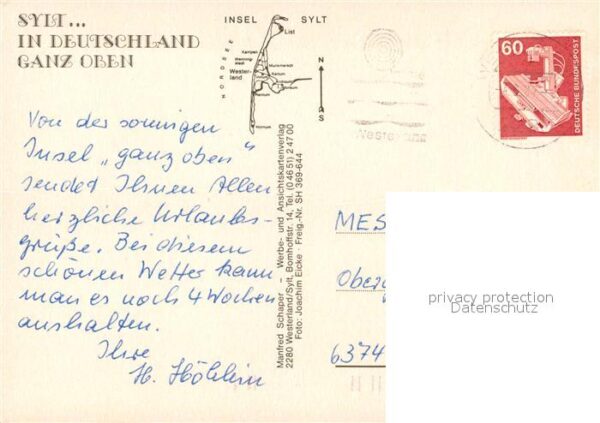 SYLT...
IN DEUTSCHLAND
GANZ OBEN
INSEL SYLT
NORDSEE
List
Kampen
Westerland
60
DEUTSCHE BUNDESPOST
Westerland
Von der sonnigen
Insel „ganz oben“
sendet Ihnen Allen
herzliche Urlaubs-
grüße. Bei diesem
schönen Wetter kann
man es noch 4 Wochen
aushalten.
Ihre
H.
Manfred Schaper – Werbe- und Ansichtskartenverlag
2280 Westerland/Sylt, Bomhoffstr. 14, Tel. (0 46 51) 2 47 00
Foto: Joachim Eicke · Freig.-Nr. SH 369-644
N
S
MES
Ober
6374
privacy protection
Datenschutz